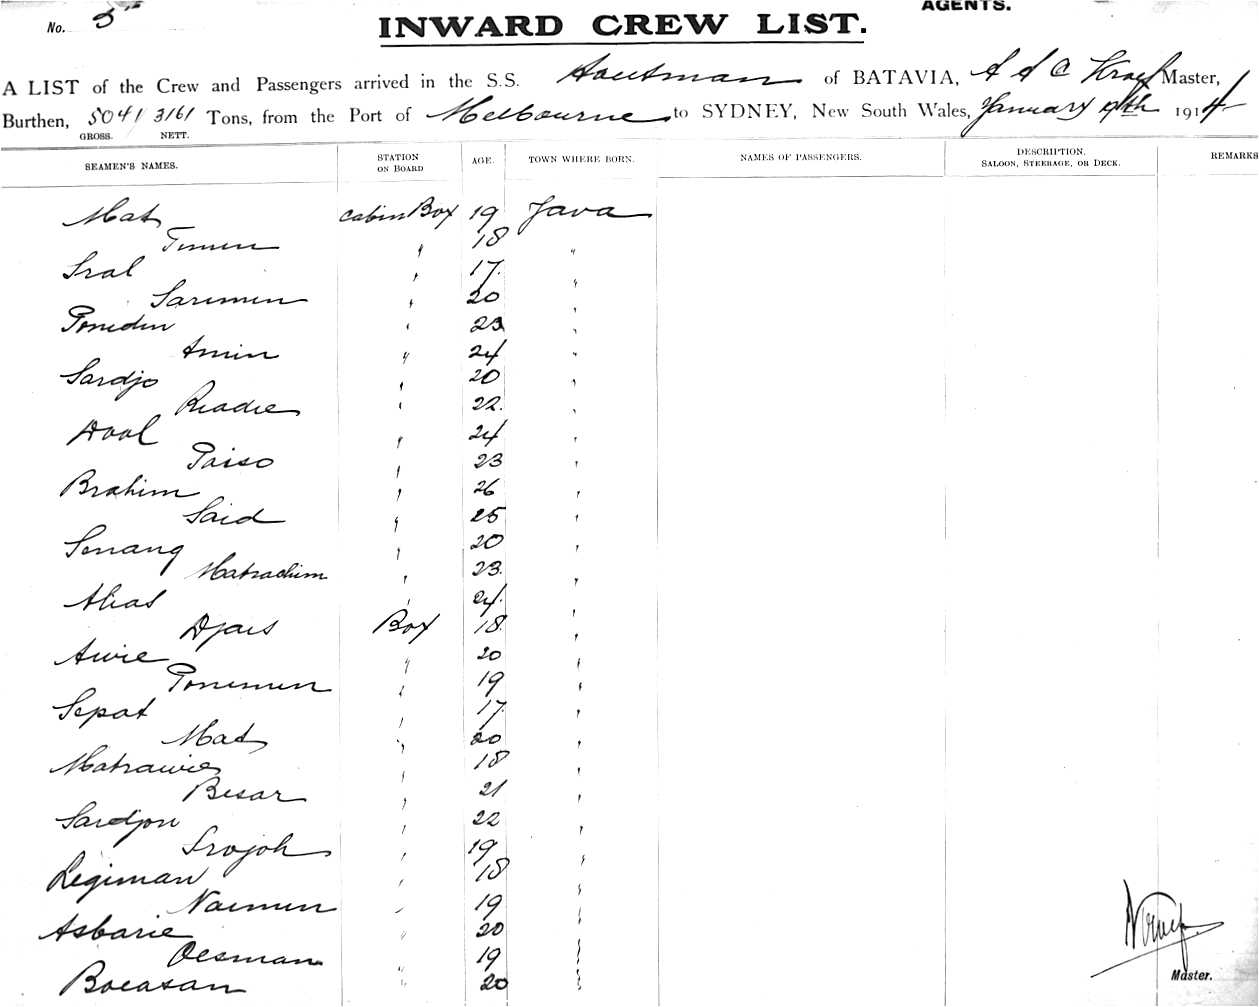 AGENTS.
No. 5
INWARD CREW LIST.
A LIST of the Crew and Passengers arrived in the S.S. Houtman of BATAVIA, Master,
Burthen, 5041 3161 Tons, from the Port of Melbourne to SYDNEY, New South Wales, January 9th 1914
GROSS. NETT.
SEAMEN'S NAMES. STATION ON BOARD AGE. TOWN WHERE BORN. NAMES OF PASSENGERS. DESCRIPTION, SALOON, STEERAGE, OR DECK. REMARKS
Mat cabin Boy 19 Java
" 18 "
Sral " 17 "
Sarimin " 20 "
Ponidin " 23 "
Amin " 24 "
Sardjo " 20 "
Readie " 22 "
Dool " 24 "
Paiso " 23 "
Brahim " 26 "
Said " 25 "
Senang " 20 "
Matrachim " 23 "
Alias " 24 "
Djais Boy 18 "
Awie " 20 "
Ponimin " 19 "
Sepat " 17 "
Mat " 20 "
Matrawie " 18 "
Besar " 21 "
Sardjon " 22 "
" 19 "
Legiman " 18 "
Naimun " 19 "
Asbarie " 20 "
Oesman " 19 "
Boeasan " 20 "
Master.